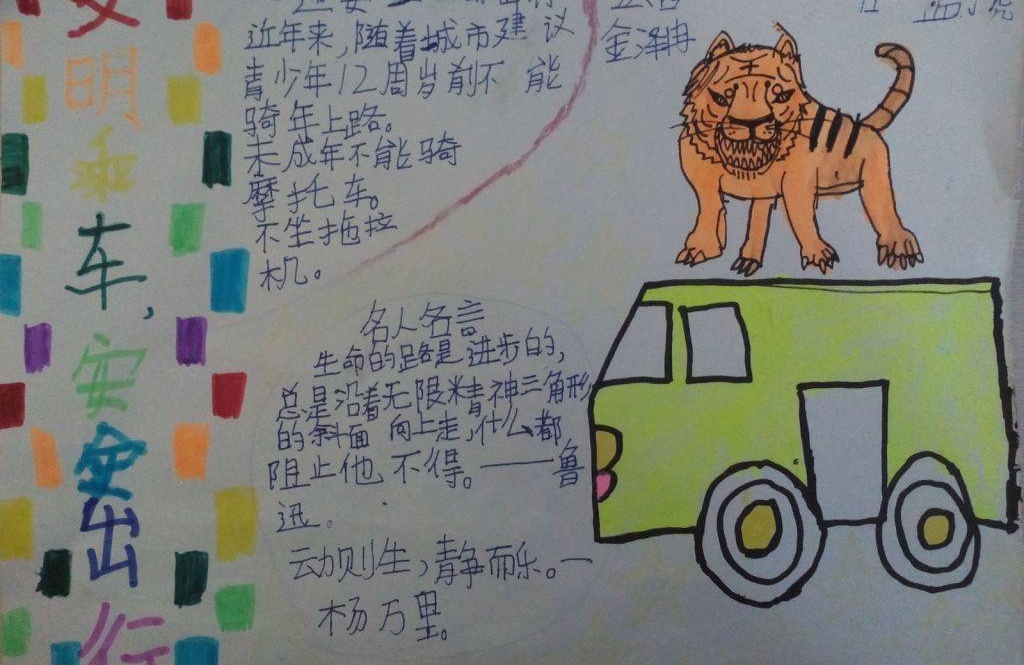 近年来,随着城市建议
青少年12周岁前不能
骑车上路。
未成年不能骑
摩托车。
不坐拖拉
机。
金泽冉
明乘车,安全出行
名人名言
生命的路是进步的,
总是沿着无限精神三角形
的斜面向上走,什么都
阻止他不得。——鲁
迅。
动则生,静而乐。一
杨万里。